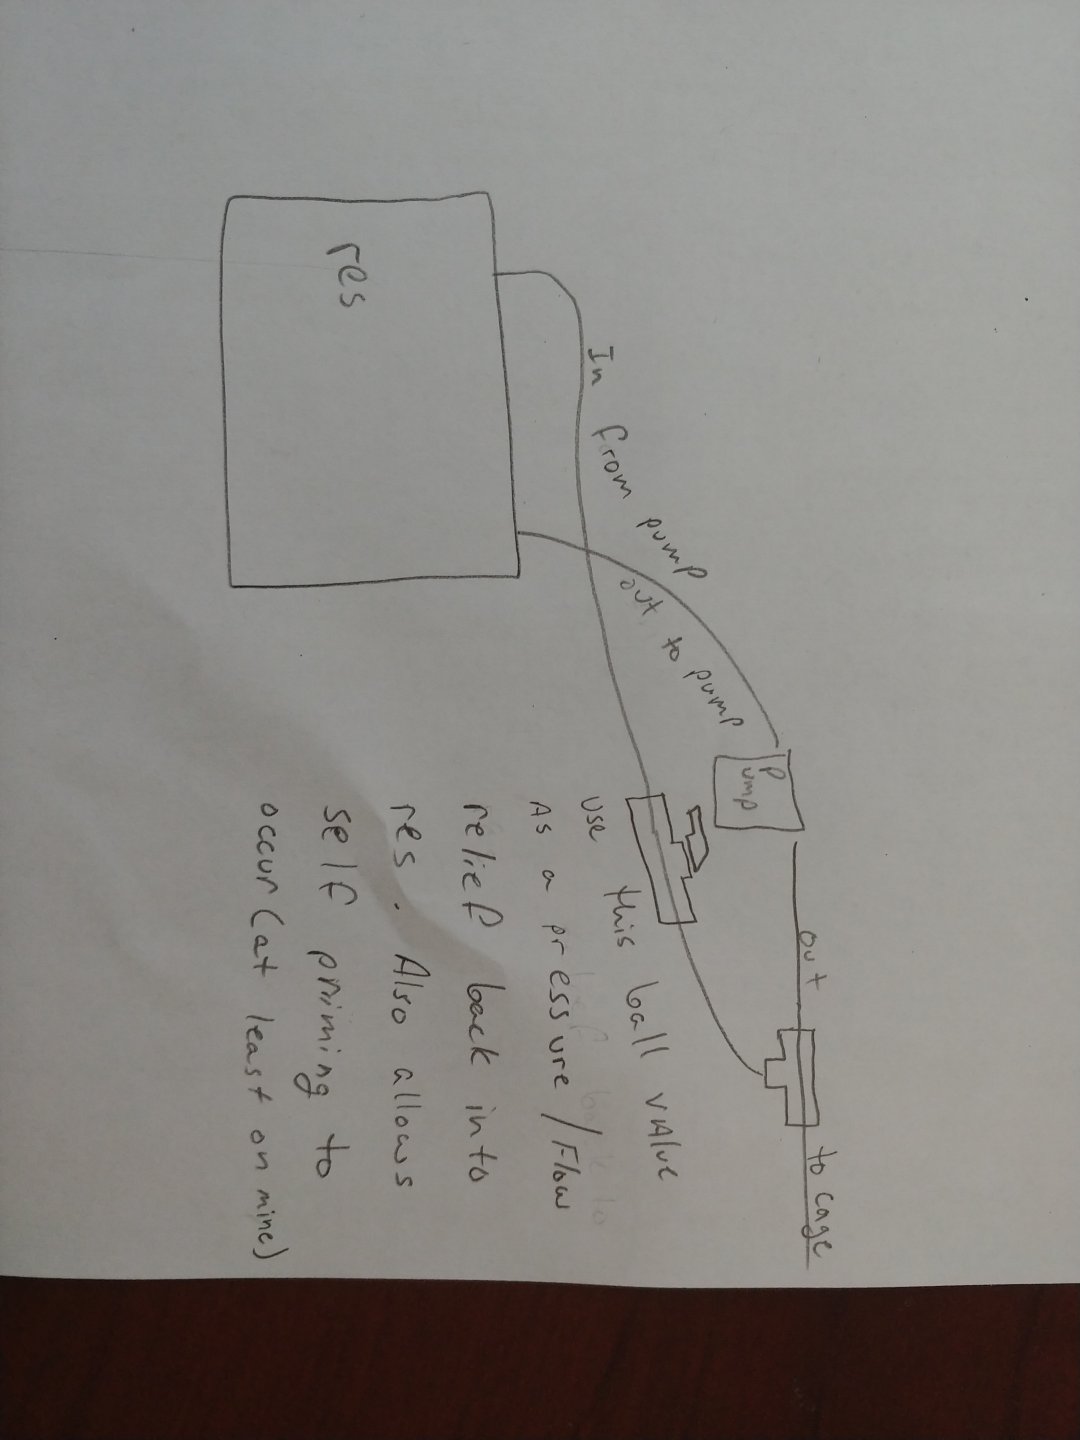 res
In from pump
out to pump
Pump
out
to cage
use this ball valve
As a pressure/Flow
relief back into
res. Also allows
self priming to
occur (at least on mine)